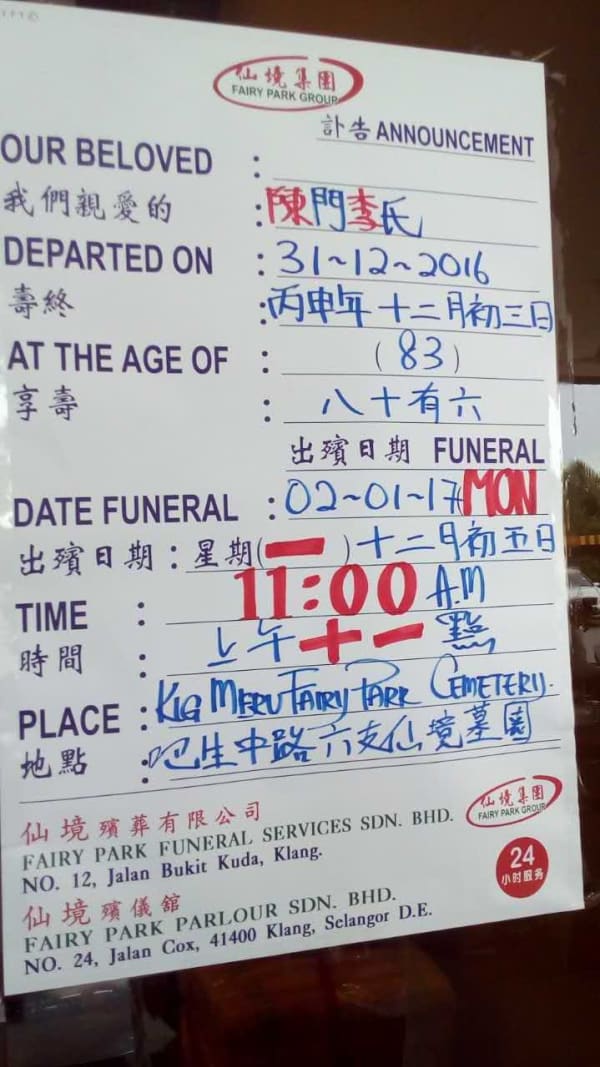 仙境集團
FAIRY PARK GROUP
訃告 ANNOUNCEMENT
OUR BELOVED :
我們親愛的 : 陳門李氏
DEPARTED ON : 31~12~2016
壽終 : 丙申年十二月初三日
AT THE AGE OF : (83)
享壽 : 八十有六
出殯日期 FUNERAL
DATE FUNERAL : 02~01~17 MON
出殯日期 : 星期(一)十二月初五日
TIME : 11:00 A.M
時間 : 上午十一點
PLACE : KLG MERU FAIRY PARK CEMETERY.
地點 : 吧生中路六支仙境墓園
仙境殯葬有限公司
FAIRY PARK FUNERAL SERVICES SDN. BHD.
NO. 12, Jalan Bukit Kuda, Klang.
仙境集團
FAIRY PARK GROUP
24
小时服务
仙境殯儀館
FAIRY PARK PARLOUR SDN. BHD.
NO. 24, Jalan Cox, 41400 Klang, Selangor D.E.